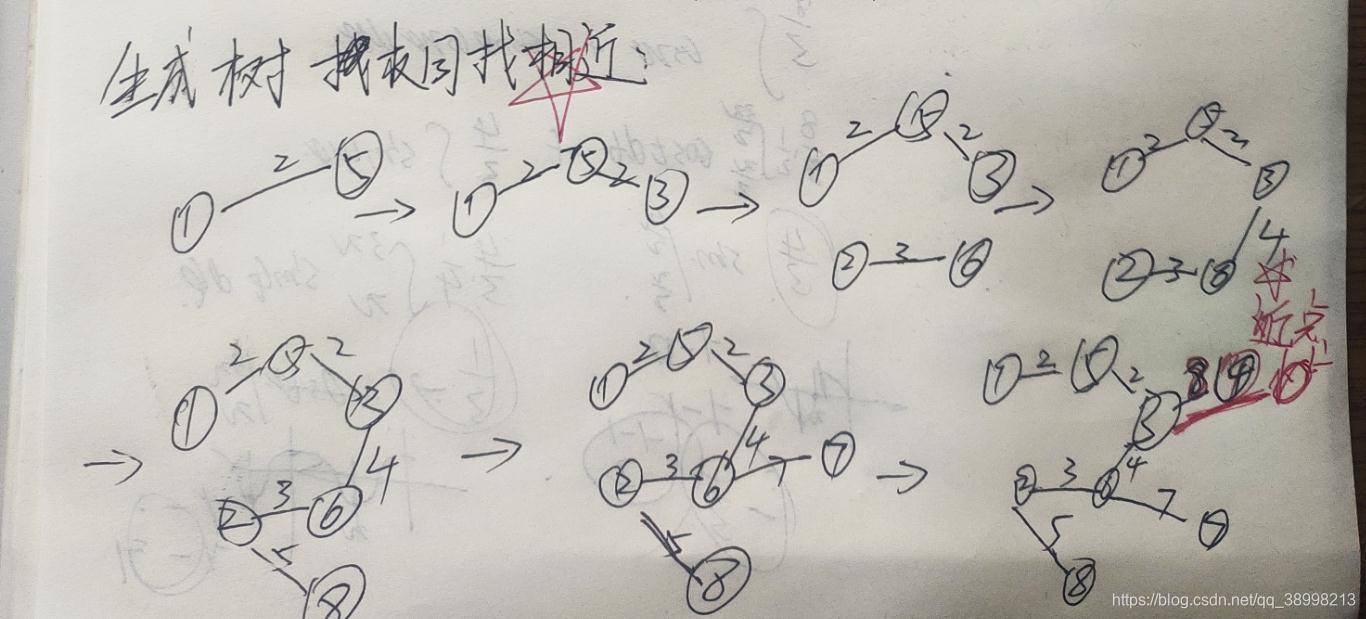 生成树 找校园找相近:
① 2 ⑤ → ① 2 ⑤ 2 ③ → ① 2 ⑤ 2 ③ → ① 2 ⑤ 2 ③
② 3 ⑥ ② 3 ⑥ 4
近点
→ ① 2 ⑤ 2 ③ → ① 2 ⑤ 2 ③ → ① 2 ⑤ 2 ③ 8 ④
② 3 ⑥ 4 ② 3 ⑥ 4 7 ⑦ ② 3 ⑥ 4 7 ⑦
5 ⑧ 5 ⑧ 5 ⑧
https://blog.csdn.net/qq_38998213